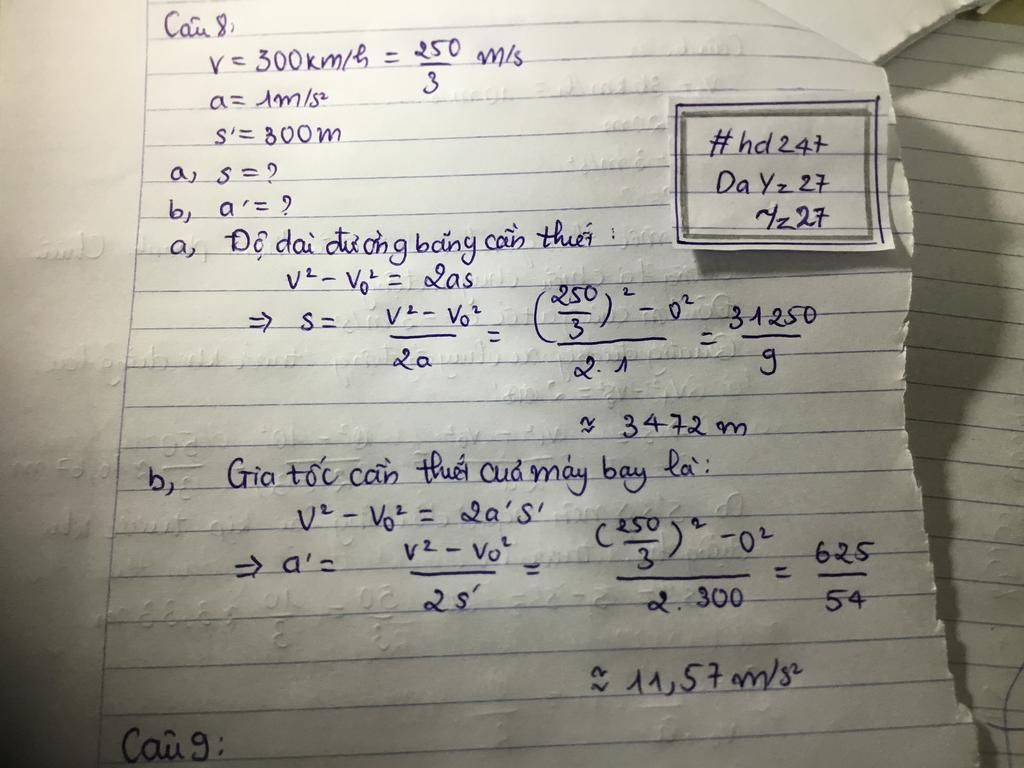 Câu 8:
v = 300km/h = 250/3 m/s
a = 1m/s²
s' = 300m
a, s = ?
b, a' = ?
#hd247
DaY=27
Y=27
a, Độ dài đường băng cần thiết :
v² - v₀² = 2as
⇒ s = (v² - v₀²)/2a = ((250/3)² - 0²)/2.1 = 31250/9
≈ 3472 m
b, Gia tốc cần thiết của máy bay là:
v² - v₀² = 2a's'
⇒ a' = (v² - v₀²)/2s' = ((250/3)² - 0²)/2.300 = 625/54
≈ 11,57 m/s²
Câu 9: